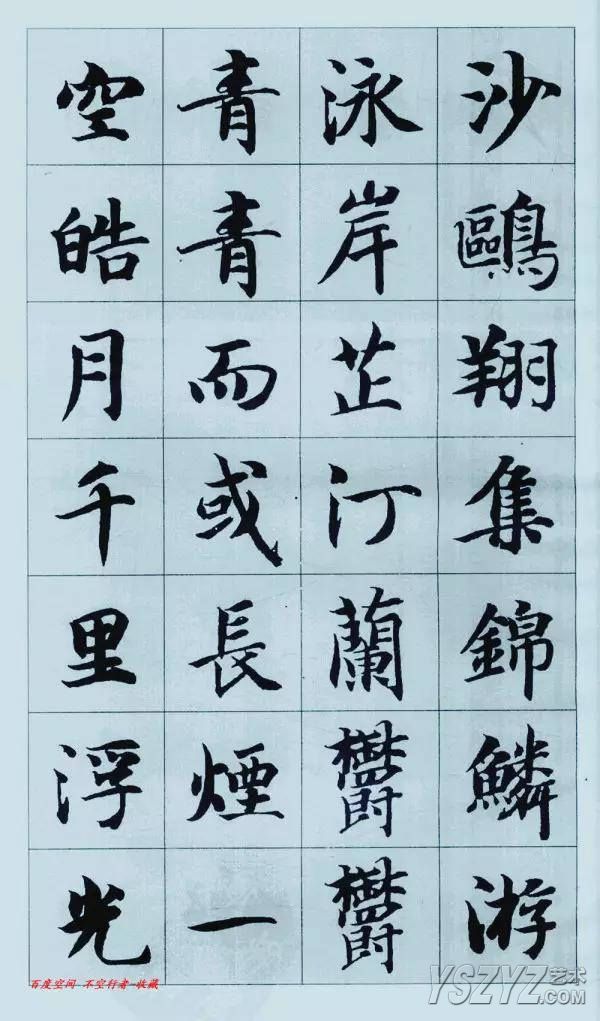 沙鷗翔集錦鱗游
泳岸芷汀蘭鬱鬱
青青而或長煙一
空皓月千里浮光
百度空间 不空行者 收藏
YSZYZ艺术
.COM